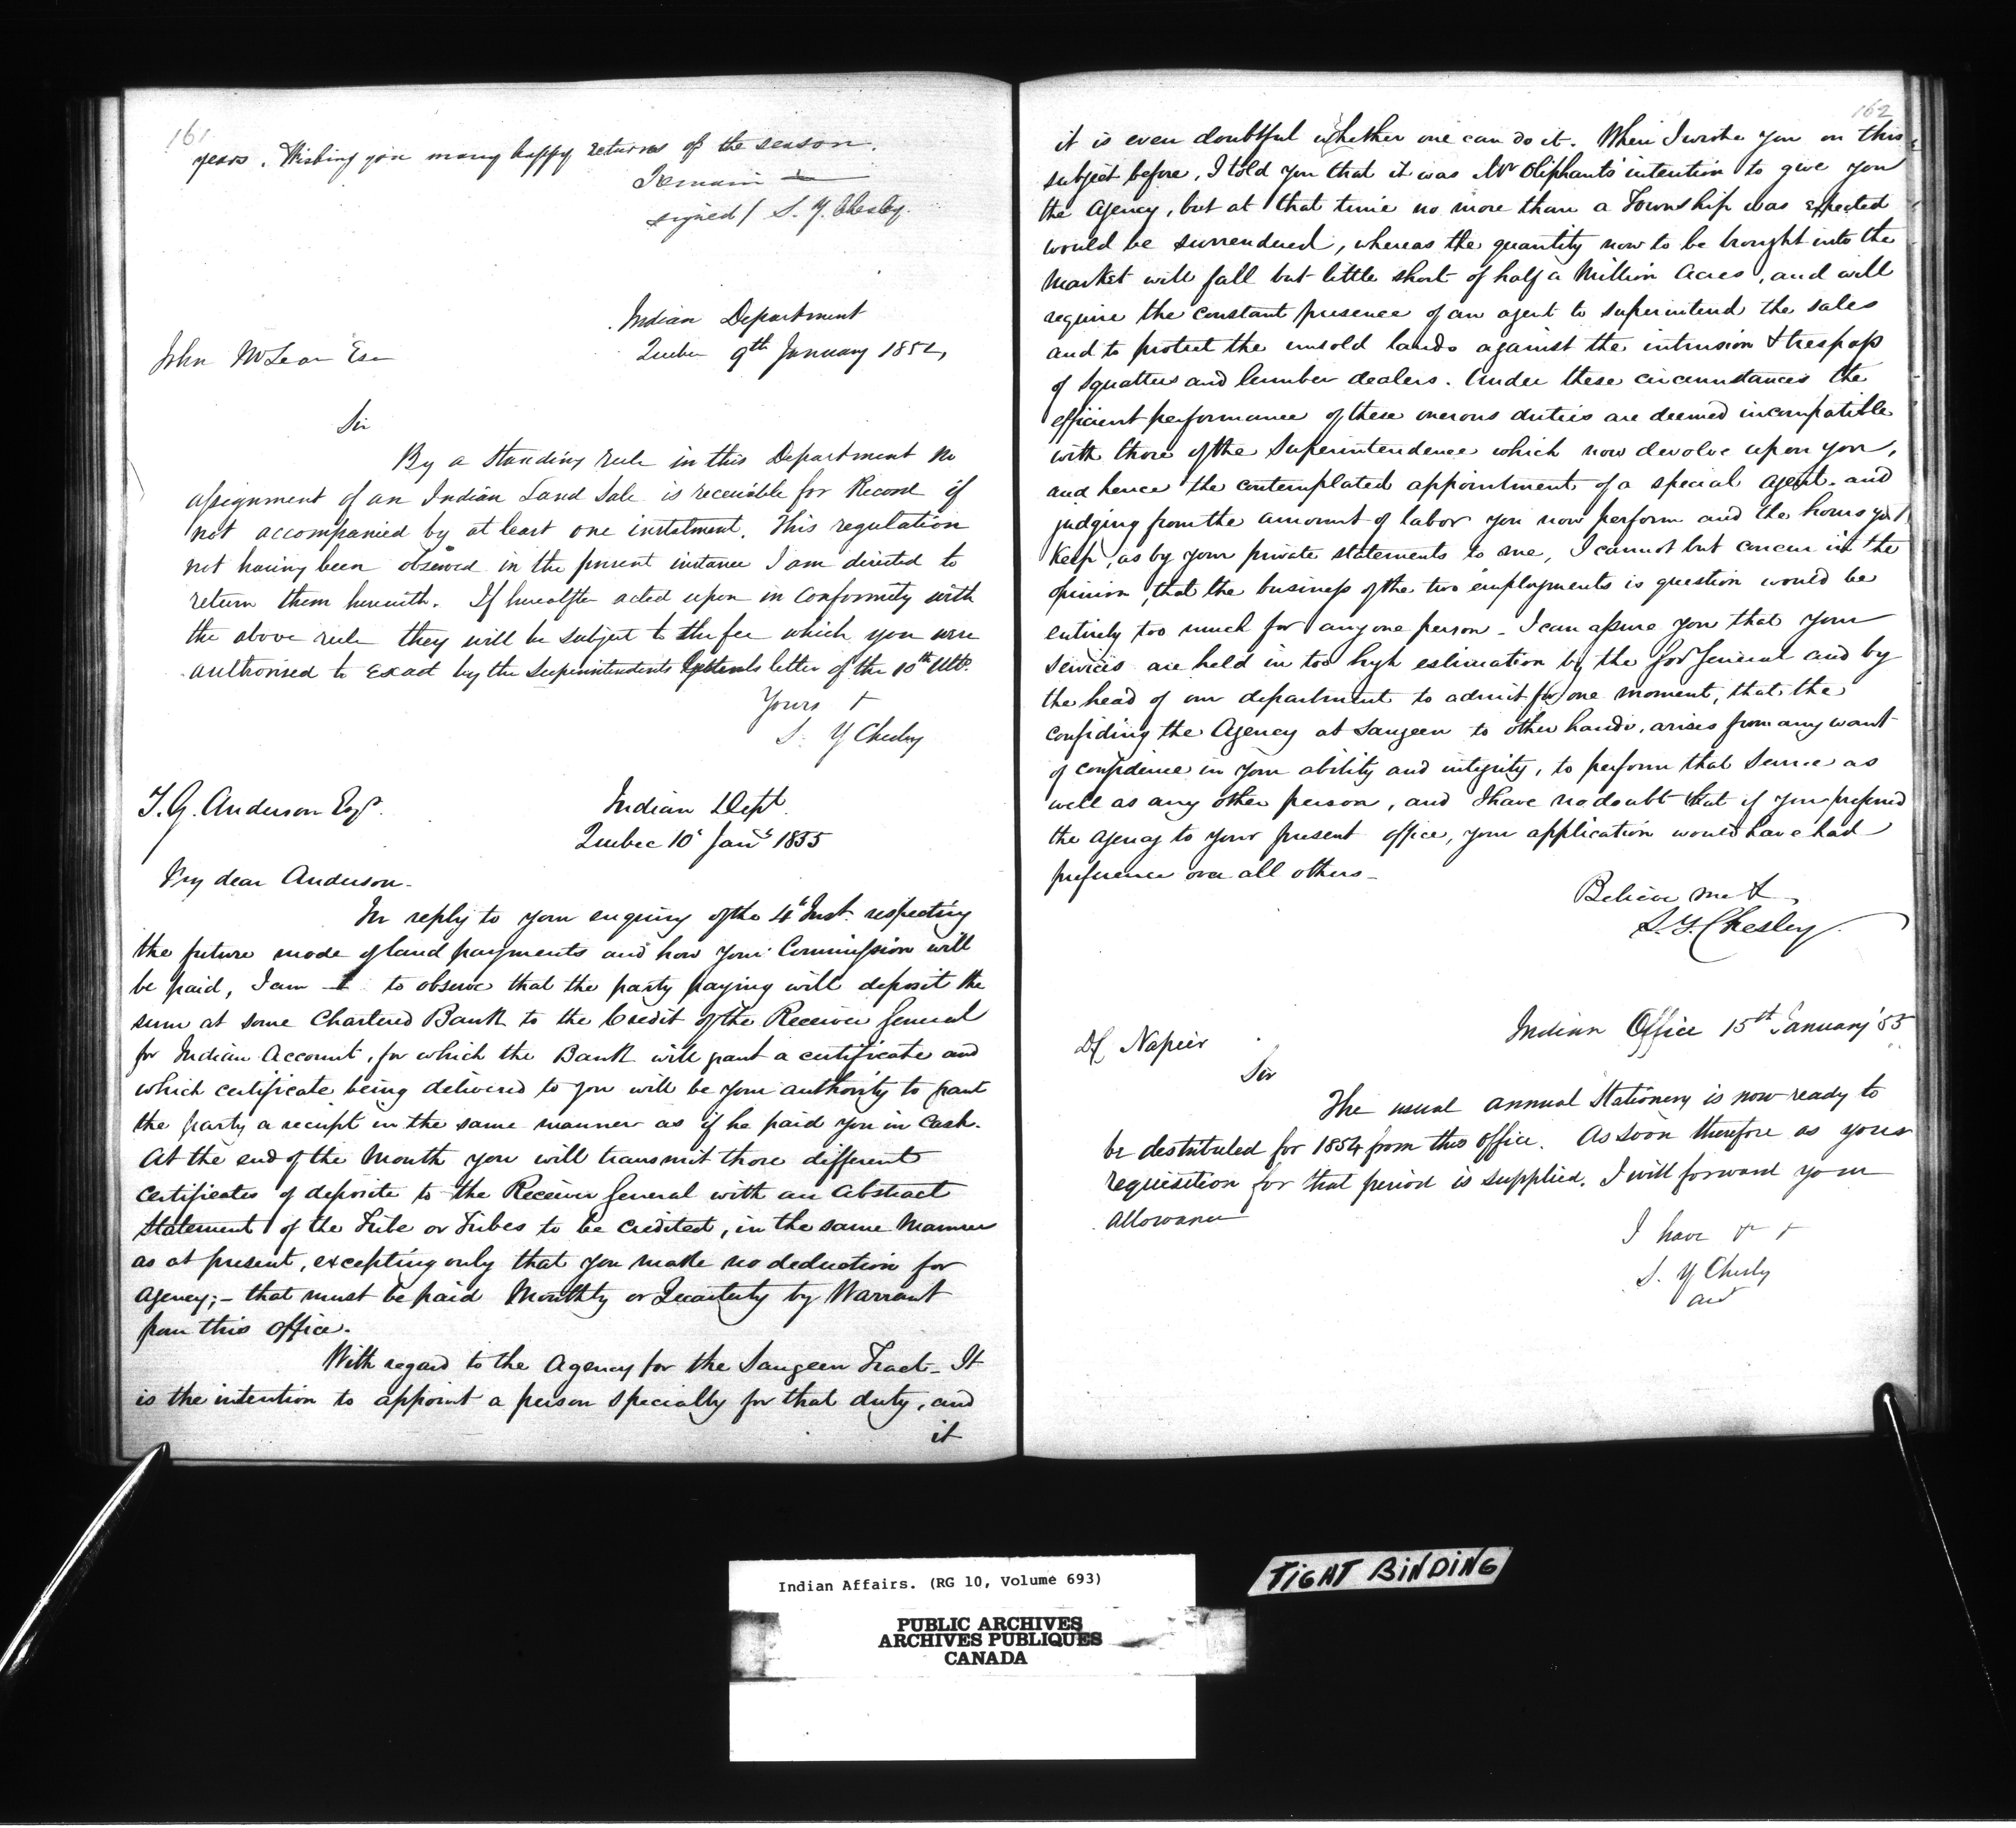 161
years. Wishing you many happy returns of the season.
I remain
signed / S. Y. Chesley.
Indian Department
Quebec 9th January 1852,
John McLean Esr
Sir
By a standing rule in this Department no
assignment of an Indian Land Sale is receivable for Record if
not accompanied by at least one instalment. This regulation
not having been observed in the present instance I am directed to
return them herewith. If hereafter acted upon in conformity with
the above rule they will be subject to the fee which you were
authorised to exact by the Superintendents letter of the 10th Ulto.
Yours +
S. Y Chesley
T. G. Anderson Esqr.
Indian Dept.
Quebec 10' Jany 1855
My dear Anderson.
In reply to your enquiry of the 4th Inst. respecting
the future mode of land payments and how your Commission will
be paid, I am to observe that the party paying will deposit the
sum at some Chartered Bank to the Credit of the Receiver General
for Indian Account, for which the Bank will grant a certificate and
which certificate being delivered to you will be your authority to grant
the party a receipt in the same manner as if he paid you in Cash.
At the end of the Month you will transmit those different
Certificates of deposite to the Receiver General with an Abstract
Statement of the Tribe or Tribes to be Credited, in the same Manner
as at present, excepting only that you make no deduction for
Agency; - that must be paid Monthly or Quarterly by Warrant
from this office.
With regard to the Agency for the Saugeen Tract - It
is the intention to appoint a person specially for that duty, and
it
162
it is even doubtful whether one can do it. When I wrote you on this
subject before, I told you that it was Mr Oliphant's intention to give you
the Agency, but at that time no more than a Township was expected
would be surrendered, whereas the quantity now to be brought into the
Market will fall but little short of half a Million Acres, and will
require the constant presence of an agent to superintend the sales
and to protect the unsold lands against the intrusion & trespass
of Squatters and lumber dealers. Under these circumstances the
efficient performance of these onerous duties are deemed incompatible
with those of the Superintendence which now devolve upon you,
and hence the contemplated appointment of a special Agent. and
judging from the amount of labor you now perform and the hours you
keep, as by your private statements to me, I cannot but concur in the
opinion, that the business of the two employments is question would be
entirely too much for any one person - I can assure you that your
services are held in too high estimation by the Govr General and by
the head of our department to admit for one moment, that the
confiding the Agency at Saugeen to other hands, arises from any want
of confidence in your ability and integrity, to perform that Service as
well as any other person, and I have no doubt that if you preferred
the Agency to your present office, your application would have had
preference over all others -
Believe me &
S. Y. Chesley.
Indian Office 15th January '55
Napier
Sir
The usual annual Stationery is now ready to
be destributed for 1854 from this office. As soon therefore as your
requisition for that period is supplied. I will forward your
allowance
I have & +
S. Y Chesly
Indian Affairs. (RG 10, Volume 693)
PUBLIC ARCHIVES
ARCHIVES PUBLIQUES
CANADA
TIGHT BINDING